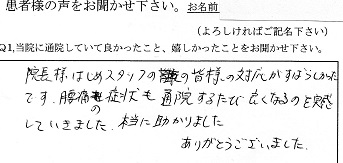 患者様の声をお聞かせ下さい。お名前
（よろしければご記名下さい）
Q1,当院に通院していて良かったこと、嬉しかったことをお聞かせ下さい。
院長様はじめスタッフの皆様の対応がすばらしかった
です。腰痛の症状も通院するたび良くなるのを実感
していきました。本当に助かりました
ありがとうございました。